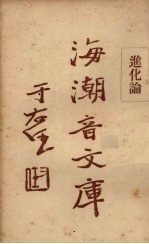 進化論
海潮音文庫
于右任